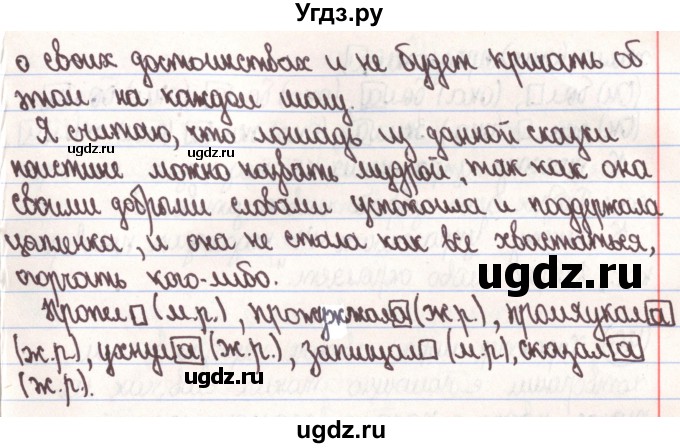 Угдз.ру
о своих достоинствах и не будет кричать об
этом на каждом шагу.
Я считаю, что лошадь из данной сказки
поистине можно назвать мудрой, так как она
своими добрыми словами успокоила и поддержала
цыпленка, и она не стала как все хвастаться,
огорчать кого-либо.
Пропел□ (м.р.), прожужжала (ж.р.), промяукала
(ж.р.), ухнула (ж.р.), запищал□ (м.р.), сказала
(ж.р.).
ugdz.ru
ugdz.ru
ugdz.ru
ugdz.ru
ugdz.ru
ugdz.ru
©ugdz.ru